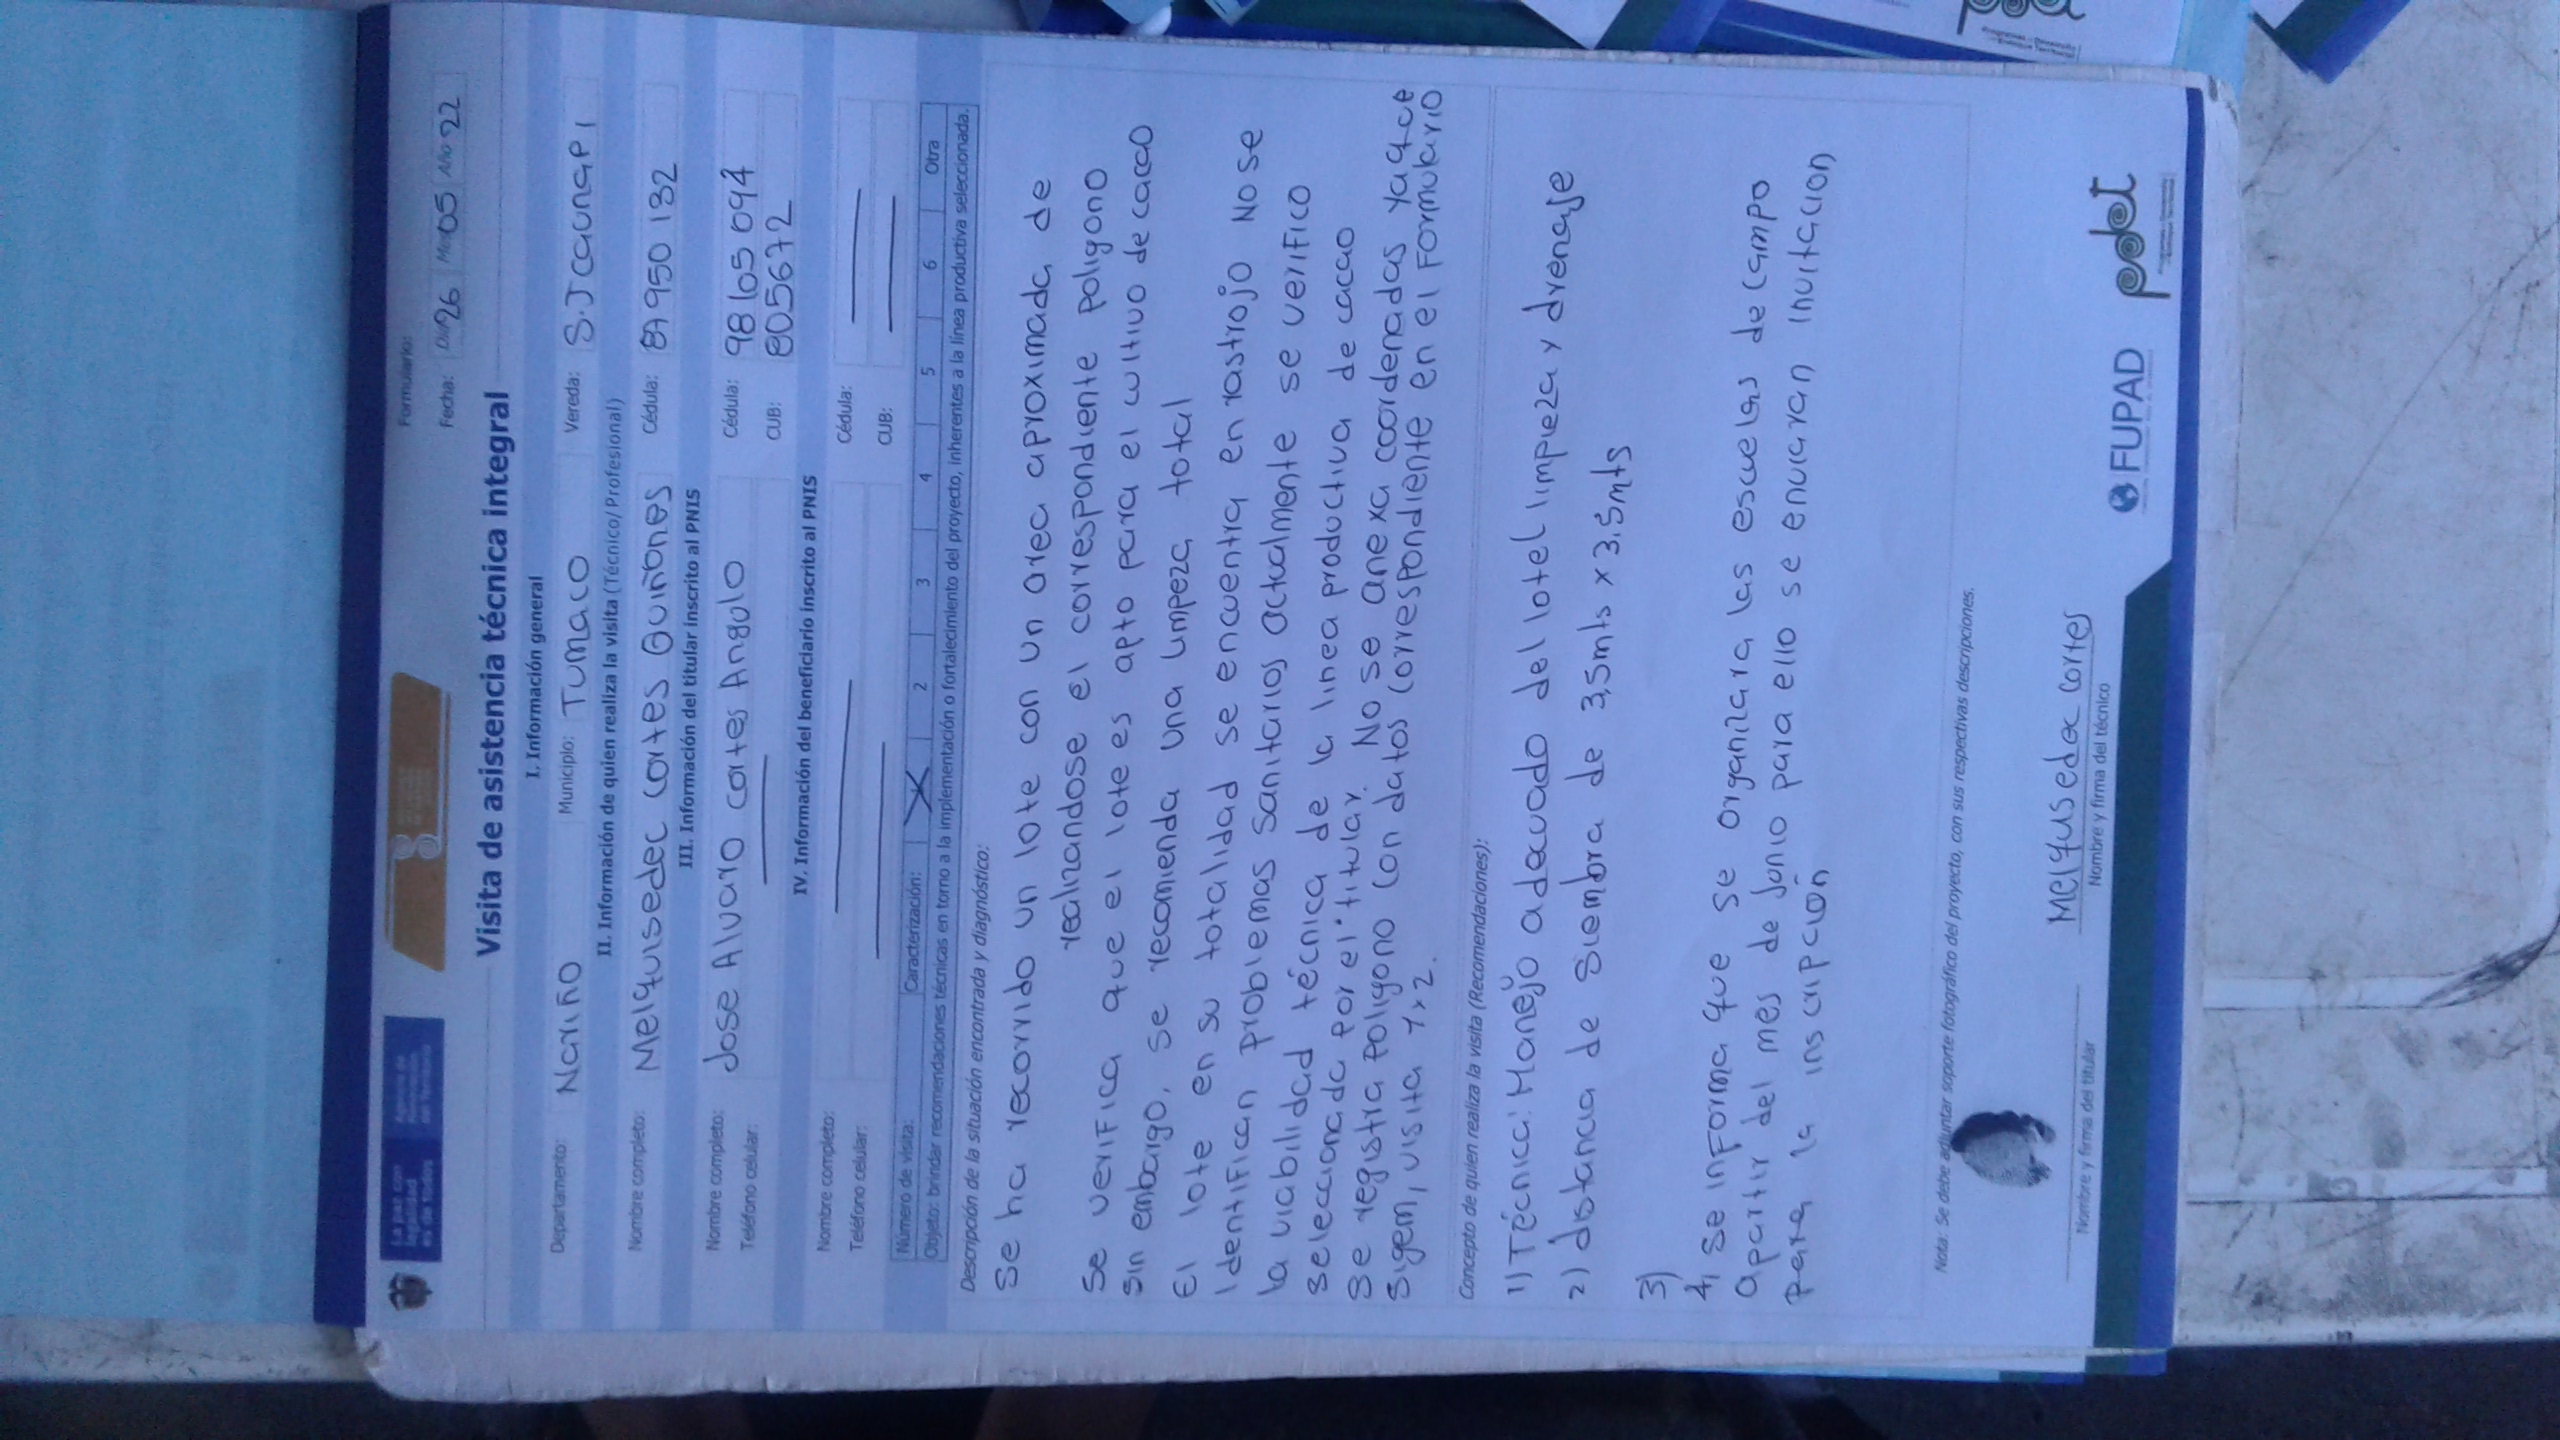 La paz con
legalidad
es de todos
Formulario:
Fecha: Día 26 Mes 05 Año 22
Visita de asistencia técnica integral
I. Información general
Departamento: Nariño Municipio: Tumaco Vereda: S.J caunapi
II. Información de quien realiza la visita (Técnico/ Profesional)
Nombre completo: Melquisedec cortes Quiñones Cédula: 87950132
III. Información del titular inscrito al PNIS
Nombre completo: Jose Alvaro cortes Angulo Cédula: 98105094
Teléfono celular: CUB: 805672
IV. Información del beneficiario inscrito al PNIS
Nombre completo: Cédula:
Teléfono celular: CUB:
Número de visita: Caracterización: X 2 3 4 5 6 Otra
Objeto: brindar recomendaciones técnicas en torno a la implementación o fortalecimiento del proyecto, inherentes a la línea productiva seleccionada.
Descripción de la situación encontrada y diagnóstico:
Se ha recorrido un lote con un area aproximada de
realizandose el correspondiente poligono
Se verifica que el lote es apto para el cultivo de cacao
sin embargo, se recomienda una limpeza total
El lote en su totalidad se encuentra en rastrojo No se
Identifican problemas sanitarios actualmente se verifico
la viabilidad técnica de la linea productiva de cacao
seleccionada por el titular. No se anexa coordenadas ya que
se registra poligono con datos correspondiente en el Formulario
sigem, visita 1x2.
Concepto de quien realiza la visita (Recomendaciones):
1) Técnica: Manejo adecuado del lotel limpieza y drenaje
2) distancia de siembra de 3,5mts x 3.5mts
3)
4, se informa que se organizara las escuelas de campo
apartir del mes de Junio para ello se enviaran invitacion
para la inscripción
Nota: Se debe adjuntar soporte fotográfico del proyecto, con sus respectivas descripciones.
Melqusedec cortes
Nombre y firma del titular Nombre y firma del técnico
FUPAD
pdet